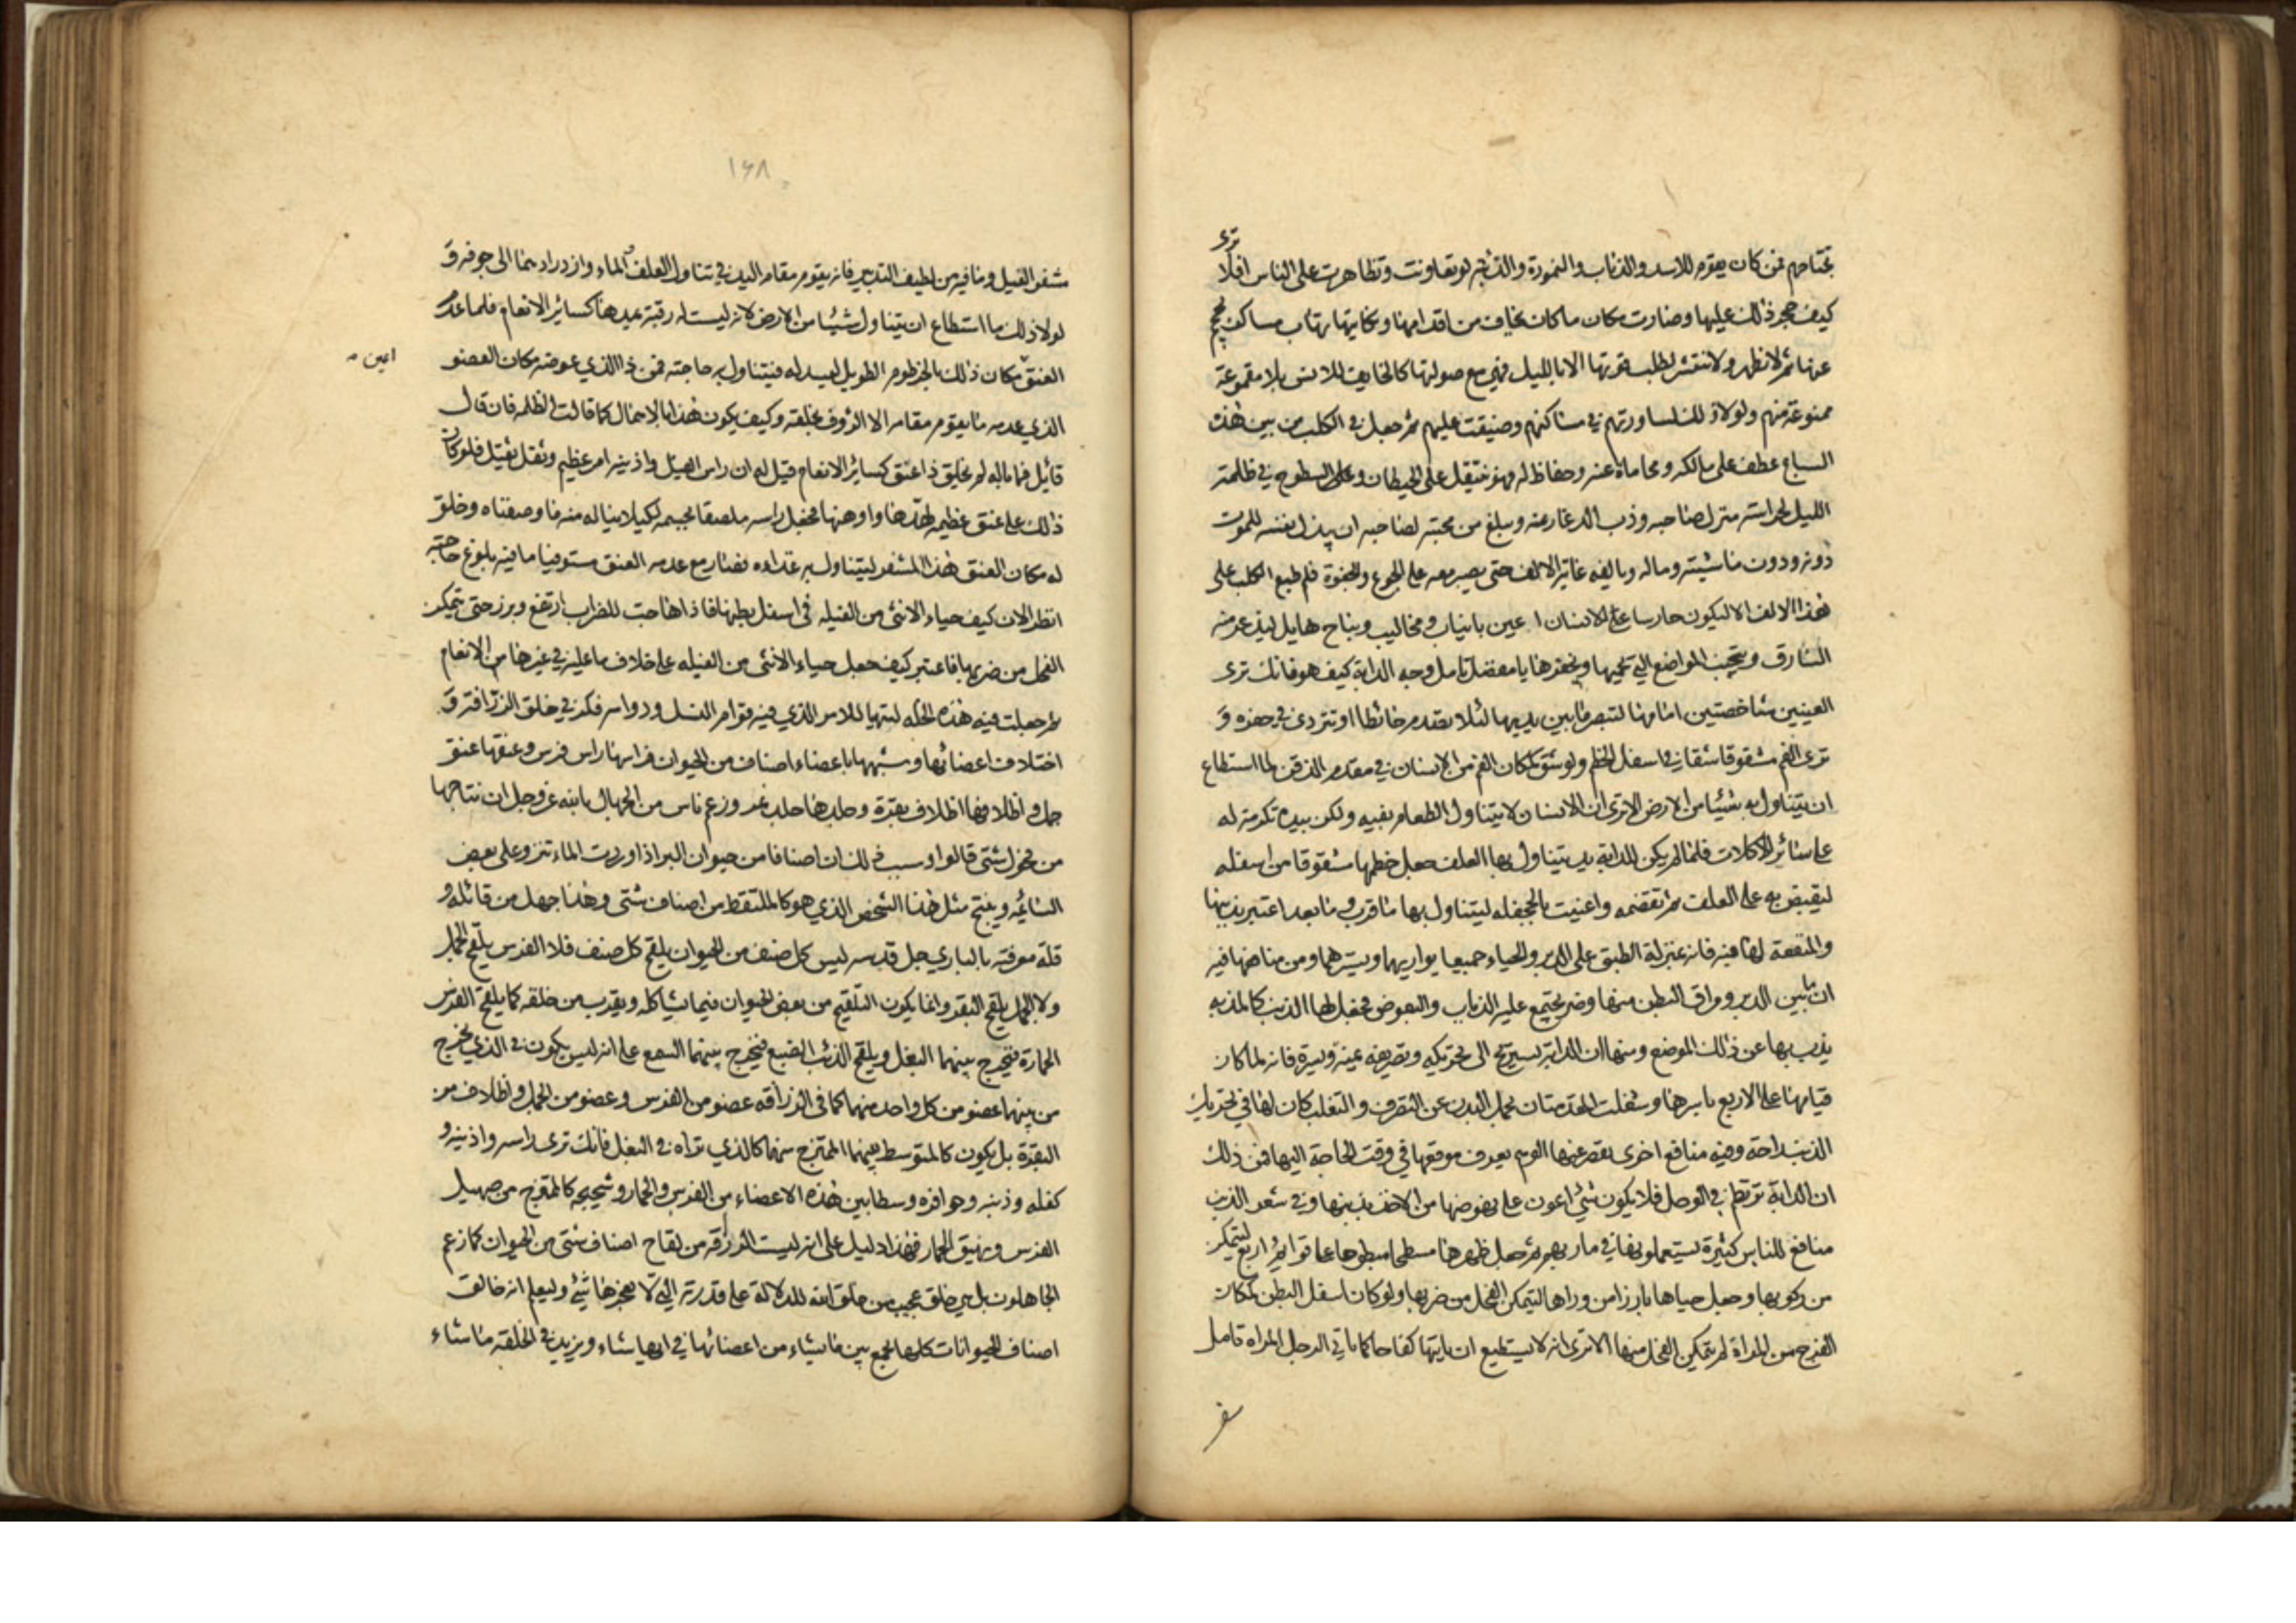 ترى
تجتاحهم فمن كان يقوم للاسد والذئاب والنمورة والدببة لو تعاونت وتظاهرت على الناس افلا
كيف حجر ذلك عليها وصارت مكان ما كان يخاف من اقدامها ونكايتها تهاب مساكن وتحجم
عنها ثم لا تظهر ولا تنتشر لطلب قوتها الا بالليل فهي مع صولتها كالخايف للانس بلا مقموعة
ممنوعة منهم ولولا ذلك لساورتهم في مساكنهم وضيقت عليهم ثم جعل في الكلب من بين هذه
السباع عطف على مالكه ومحاماة عنه وحفاظ له فهو ينتقل على الحيطان وعلى السطوح في ظلمة
الليل لحراسة منزل صاحبه وذب الدغار عنه ويبلغ من محبته لصاحبه ان يبذل نفسه للموت
دونه ودون ماشيته وماله ويالفه غاية الالف حتى يصبر معه على الجوع والجفوة فلم طبع الكلب على
هذا الالف الا ليكون حارسا على الانسان اعين بانياب ومخاليب ونباح هايل ليذعر منه
السارق ويتجنب المواضع التي يحميها ويخفرها يا مفضل تامل وجه الدابة كيف هو فانك ترى
العينين شاخصتين امامها لتبصر ما بين يديها لئلا تصدم حائطا او تتردى في حفره و
ترى الفم مشقوقا شقا في اسفل الخطم ولو شق كمكان الفم من الانسان في مقدم الذقن لما استطاع
ان يتناول به شيئا من الارض الا ترى ان الانسان لا يتناول الطعام بفيه ولكن بيده تكرمة له
على سائر الاكلات فلما لم يكن للدابة يد يتناول بها العلف جعل خطمها مشقوقا من اسفله
ليقبض به على العلف ثم تقضمه واعينت بالجحفله ليتناول بها ما قرب وما بعد اعتبر بذنبها
والمنفعة لها فيه فانه بمنزلة الطبق على الدبر والحياء جميعا يواريهما ويسترهما ومن منافعها فيه
ان ما بين الدبر ومراق البطن منها وضر يجتمع عليه الذباب والبعوض فجعل لها الذنب كالمذبه
يذب بها عن ذلك الموضع ومنها ان الدابة تستريح الى تحريكه وتصريفه يمنة ويسرة فانه لما كان
قيامها على الاربع باسرها وشغلت المقدمتان بحمل البدن عن التصرف والتقلب كان لها في تحريك
الذنب راحة وفيه منافع اخرى يقصر عنها الوهم يعرف موقعها في وقت الحاجة اليها فمن ذلك
ان الدابة ترتطم في الوحل فلا يكون شيئ اعون على نهوضها من الاخذ بذنبها وفي شعر الذنب
منافع للناس كثيرة يستعملونها في ماربهم ثم جعل ظهرها مسطحا مبطوحا على قوائم اربع ليتمكن
من ركوبها وجعل حياها بارزا من وراها ليتمكن الفحل من ضربها ولو كان اسفل البطن كمكان
الفرج من المراة لم يتمكن الفحل منها الا ترى انه لا يستطيع ان ياتيها كفاحا كما ياتي الرجل المراه تامل
۱۶۸
مشفر الفيل وما فيه من لطيف التدبير فانه يقوم مقام اليد في تناول العلف والماء وازدرادهما الى جوفه و
لولا ذلك ما استطاع ان يتناول شيئا من الارض لانه ليست له رقبة يمدها كسائر الانعام فلما عدم
العنق مكان ذلك بالخرطوم الطويل ليسدله فيتناول به حاجته فمن ذا الذي عوضه مكان العضو
اعين
الذي عدمه ما يقوم مقامه الا الرؤف بخلقه وكيف يكون هذا بالاهمال كما قالت الظلمه فان قال
قائل فما باله لم يخلق ذا عنق كسائر الانعام قيل له ان راس الفيل واذنيه امر عظيم وثقل ثقيل فلو كان
ذلك على عنق عظيم لهدها واوهنها فجعل راسه ملصقا بجسمه لكيلا يناله منه ما وصفناه وخلق
له مكان العنق هذا المشفر ليتناول به غذاءه فصار مع عدمه العنق مستوفيا ما فيه بلوغ حاجته
انظر الان كيف حياء الانثى من الفيله في اسفل بطنها فاذا هاجت للضراب ارتفع وبرز حتى يتمكن
الفحل من ضربها فاعتبر كيف جعل حياء الانثى من الفيله على خلاف ما عليه في غيرها من الانعام
ثم جعلت فيه هذه الخله ليتهيا للامر الذي فيه قوام النسل ودوامه فكر في خلق الزرافة و
اختلاف اعضائها وشبهها باعضاء اصناف من الحيوان فراسها راس فرس وعنقها عنق
جمل واظلافها اظلاف بقرة وجلدها جلد نمر وزعم ناس من الجهال بالله عز وجل ان نتاجها
من فحول شتى قالوا وسبب ذلك ان اصنافا من حيوان البر اذا وردت الماء تنزو على بعض
السائمه وينتج مثل هذا الشخص الذي هو كالملتقط من اصناف شتى وهذا جهل من قائله و
قلة معرفته بالباري جل قدسه ليس كل صنف من الحيوان يلقح كل صنف فلا الفرس يلقح الجمل
ولا الجمل يلقح البقر وانما يكون التلقيح من بعض الحيوان فيما يشاكله ويقرب من خلقه كما يلقح الفرس
الحمارة فيخرج بينهما البغل ويلقح الذئب الضبع فيخرج بينهما السمع على انه ليس يكون في الذي يخرج
من بينهما عضو من كل واحد منهما كما في الزرافه عضو من الفرس وعضو من الجمل واظلاف من
البقرة بل يكون كالمتوسط بينهما الممتزج منهما كالذي تراه في البغل فانك ترى راسه واذنيه و
كفله وذنبه وحوافره وسطا بين هذه الاعضاء من الفرس والحمار وشحيجه كالممتزج من صهيل
الفرس ونهيق الحمار فهذا دليل على انه ليست الزرافه من لقاح اصناف شتى من الحيوان كما زعم
الجاهلون بل هي خلق عجيب من خلق الله للدلالة على قدرته التي لا يعجزها شيئ وليعلم انه خالق
اصناف الحيوانات كلها يجمع بين ما يشاء من اعضائها في ايها شاء ويزيد في الخلقة ما شاء